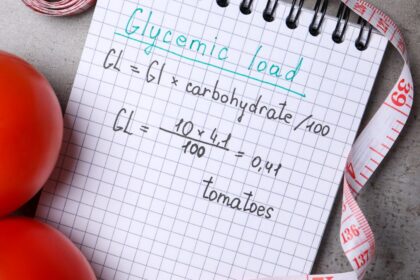 Glycemic load
GL = GI × carbohydrate/100
GL = 10 × 4,1 / 100 = 0,41
tomatoes